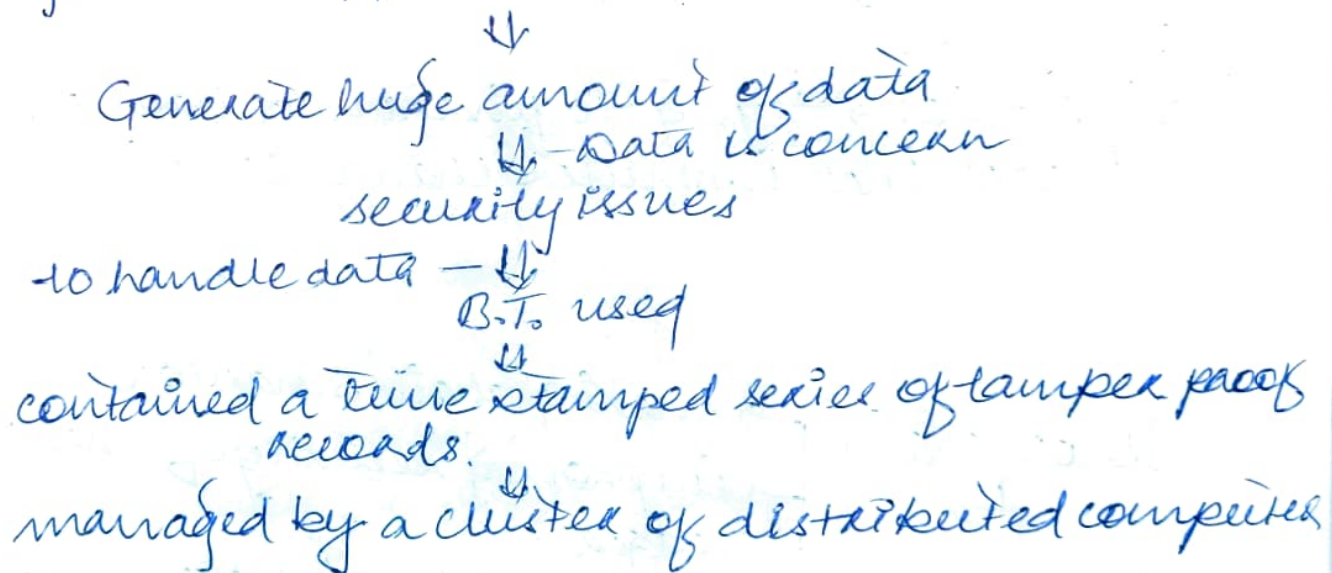 ⇓
Generate huge amount of data
⇓ - Data is concern
security issues
to handle data - ⇓
B.T. used
⇓
contained a time stamped series of tamper proof
records.
⇓
managed by a cluster of distributed computer